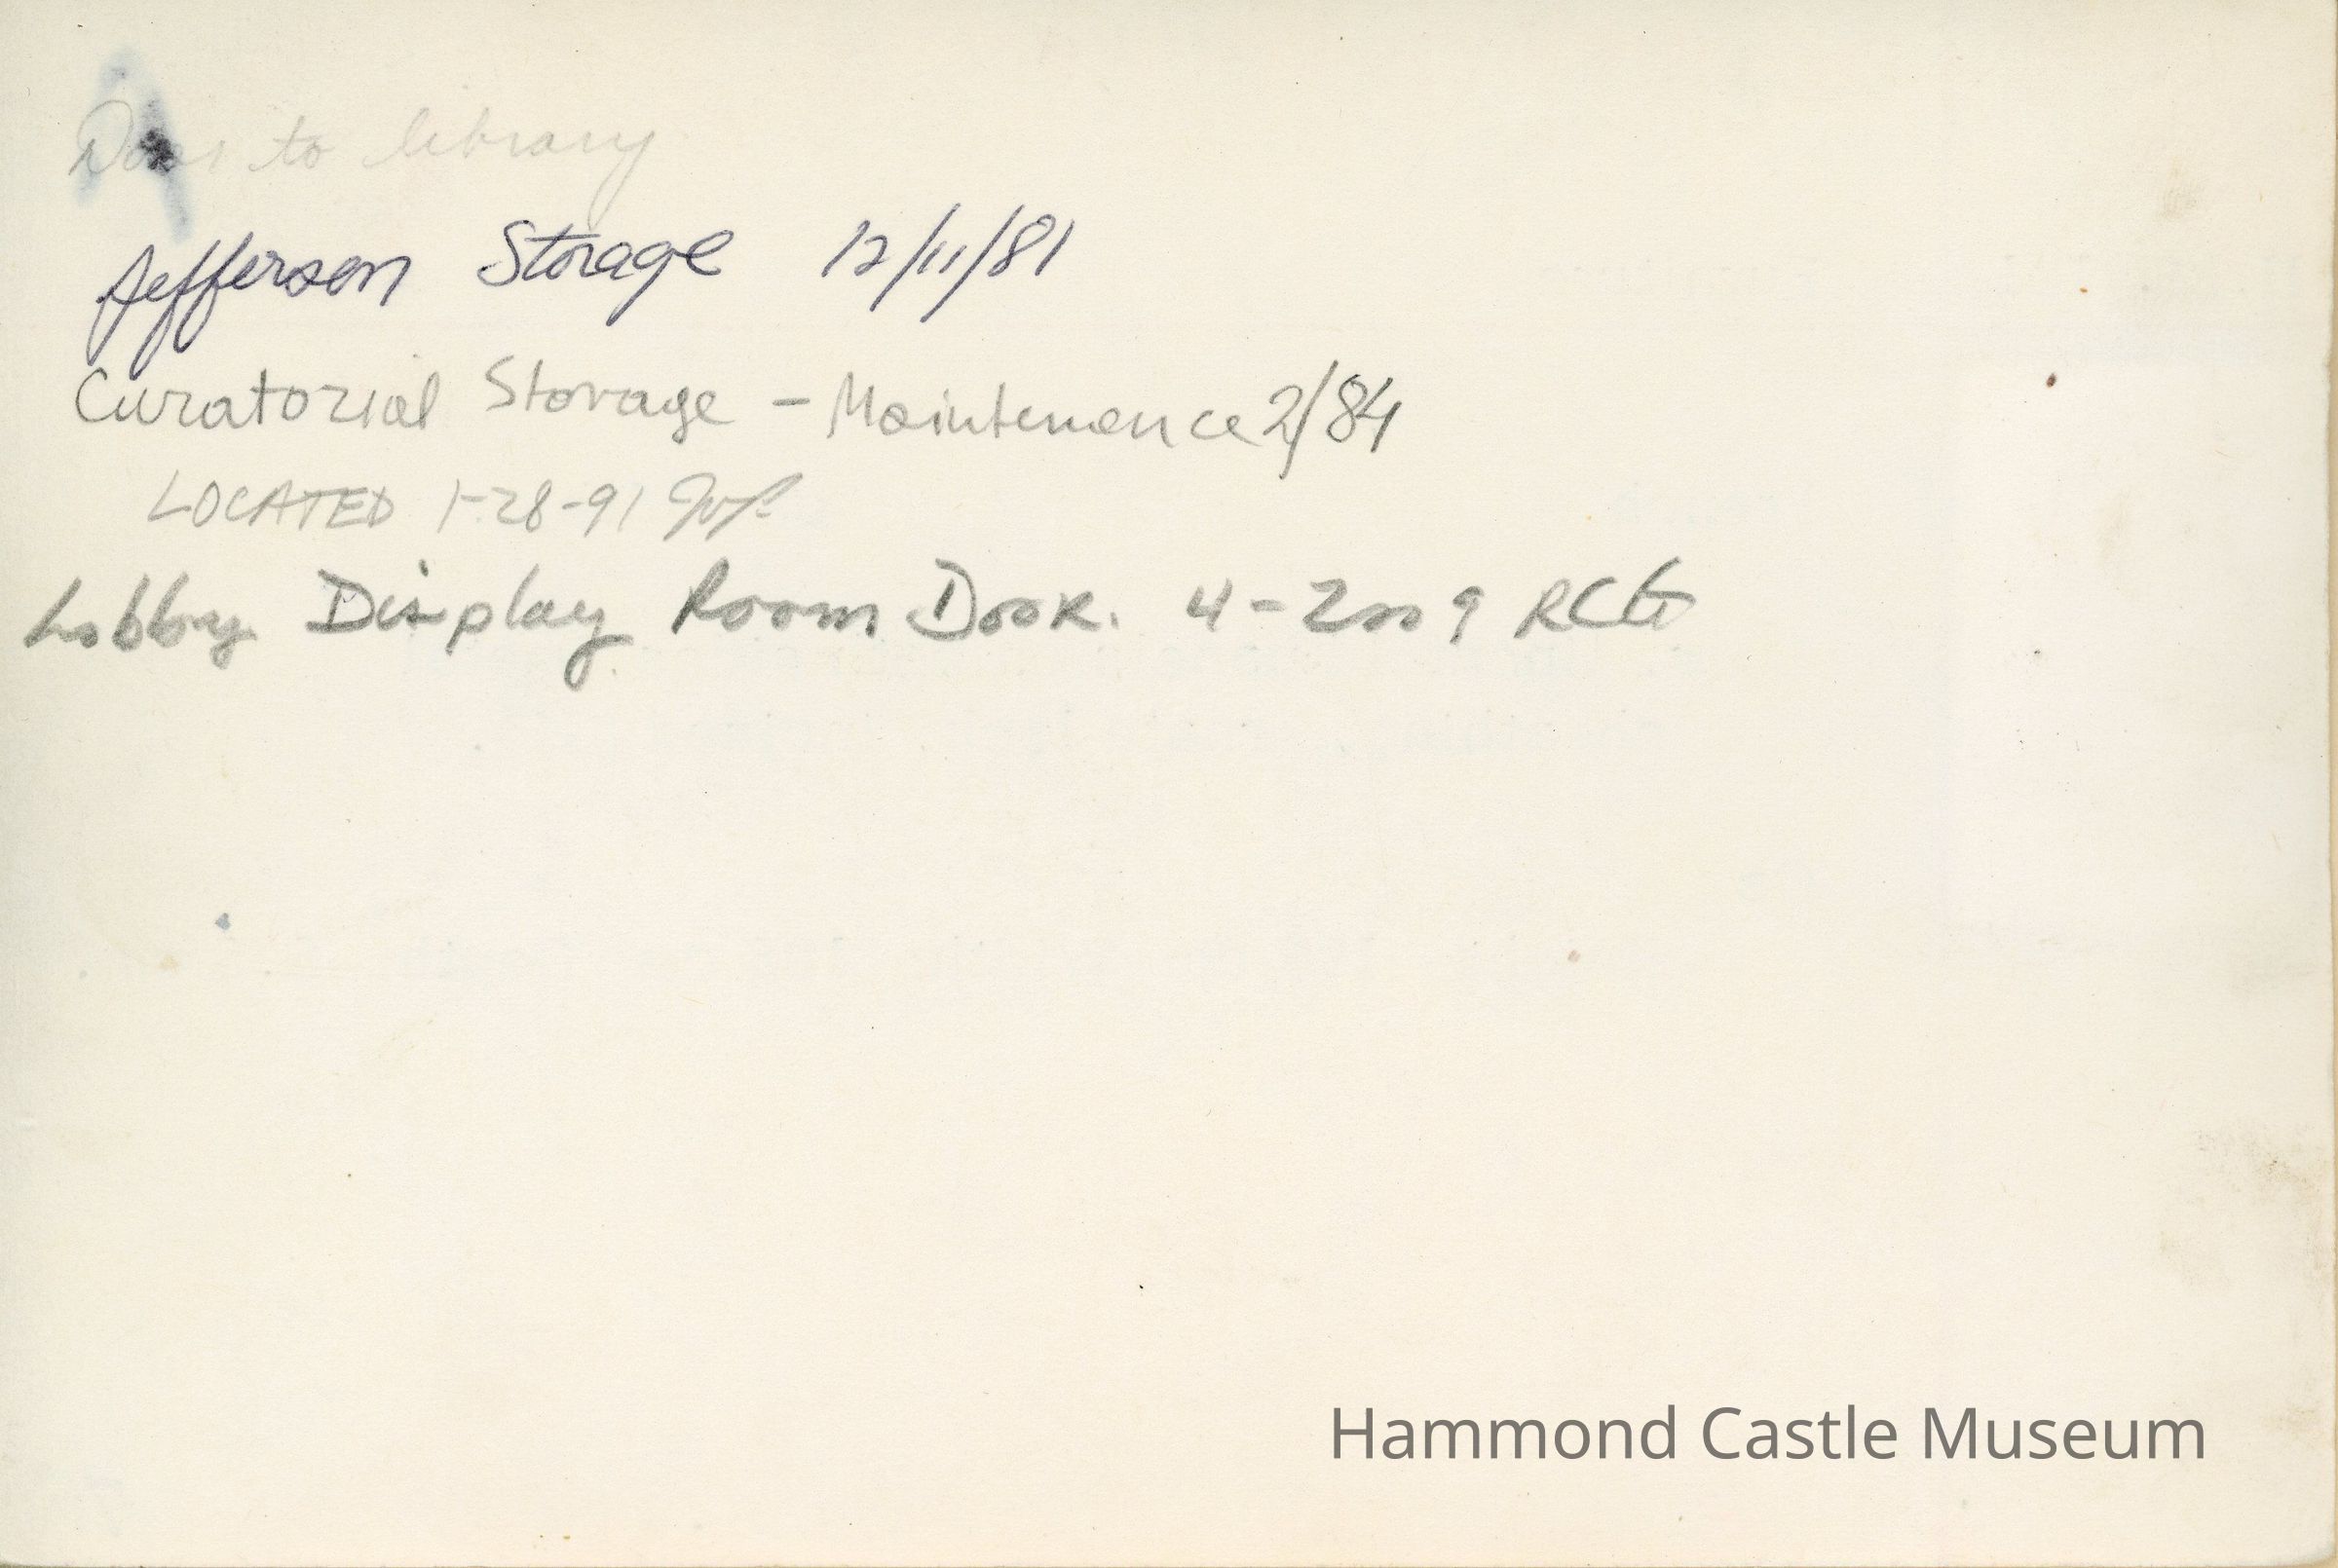 Door to library
Jefferson Storage 12/11/81
Curatorial Storage - Maintenance 2/84
LOCATED 1-28-91
Lobby Display Room Door. 4-2009 RCG
Hammond Castle Museum